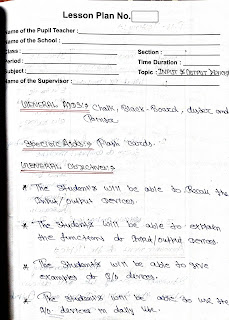 Lesson Plan No.
Name of the Pupil Teacher :
Name of the School :
Class : Section :
Period : Time Duration :
Subject : Topic : INPUT & OUTPUT DEVICES
Name of the Supervisor :
GENERAL AIDS:- Chalk, Black-Board, duster and
Pointer
SPECIFIC AIDS:- Flash Cards.
GENERAL OBJECTIVES
* The Students will be able to Recall the
Input/Output devices.
* The Students will be able to explain
the functions of Input/Output devices.
* The Students will be able to give
examples of I/O devices.
* The Students will be able to use the
I/O devices in daily life.